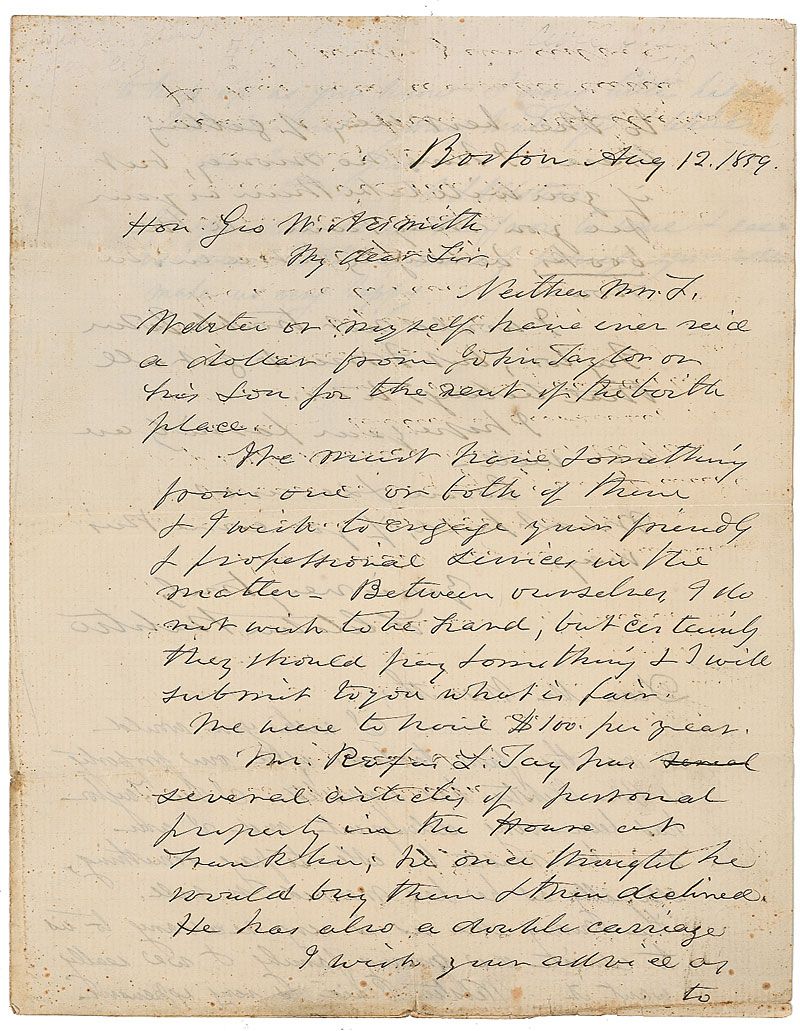 Boston Aug 12. 1859.
Hon. Geo W. Nesmith
My dear Sir,
Neither Mrs F.
Webster or myself have ever rec'd
a dollar from John Taylor or
his son for the rent of the birth
place.
We must have something
from one or both of them
& I wish to engage your friendly
& professional services in the
matter - Between ourselves, I do
not wish to be hard, but certainly
they should pay something & I will
submit to you what is fair.
We were to have $100. per year.
Mr. Rufus L. Tay has
several articles of personal
property in the House at
Franklin; he once thought he
would buy them & then declined.
He has also a double carriage
I wish your advice as
to